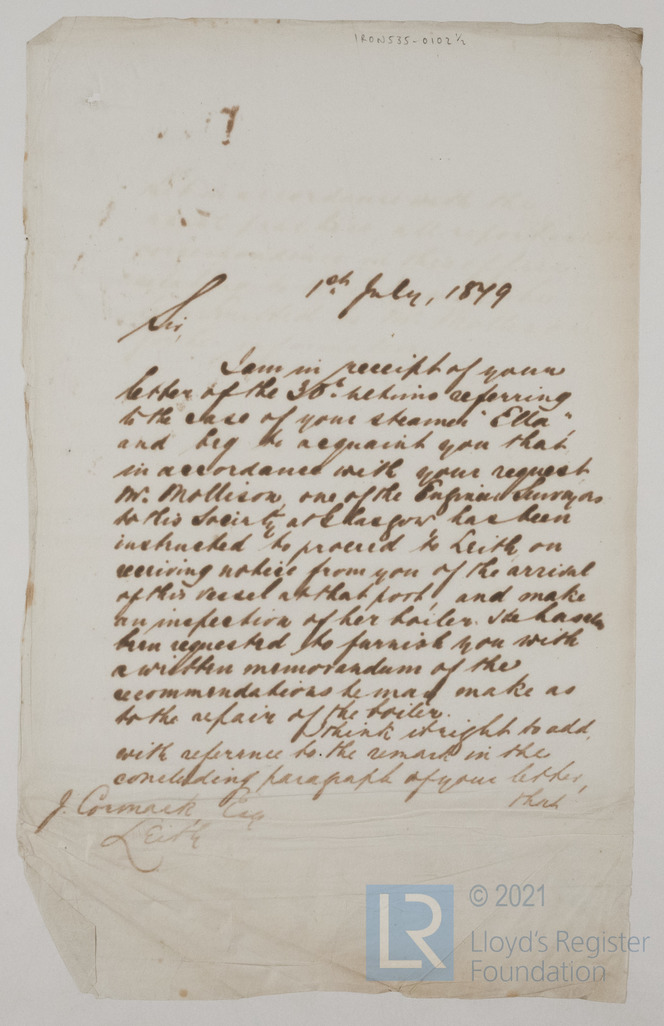 IRON535-0102½
1st July, 1879
Sir,
I am in receipt of your
letter of the 30th ultimo referring
to the case of your steamer "Ella",
and beg to acquaint you that
in accordance with your request
Mr. Mollison, one of the Engineer Surveyors
to this Society at Glasgow has been
instructed to proceed to Leith on
receiving notice from you of the arrival
of this vessel at that port, and make
an inspection of her boiler. He has also
been requested to furnish you with
a written memorandum of the
recommendations he may make as
to the repair of the boiler.
I think it right to add,
with reference to the remark in the
concluding paragraph of your letter,
that
J. Cormack, Esq
Leith
LR
© 2021
Lloyd's Register
Foundation